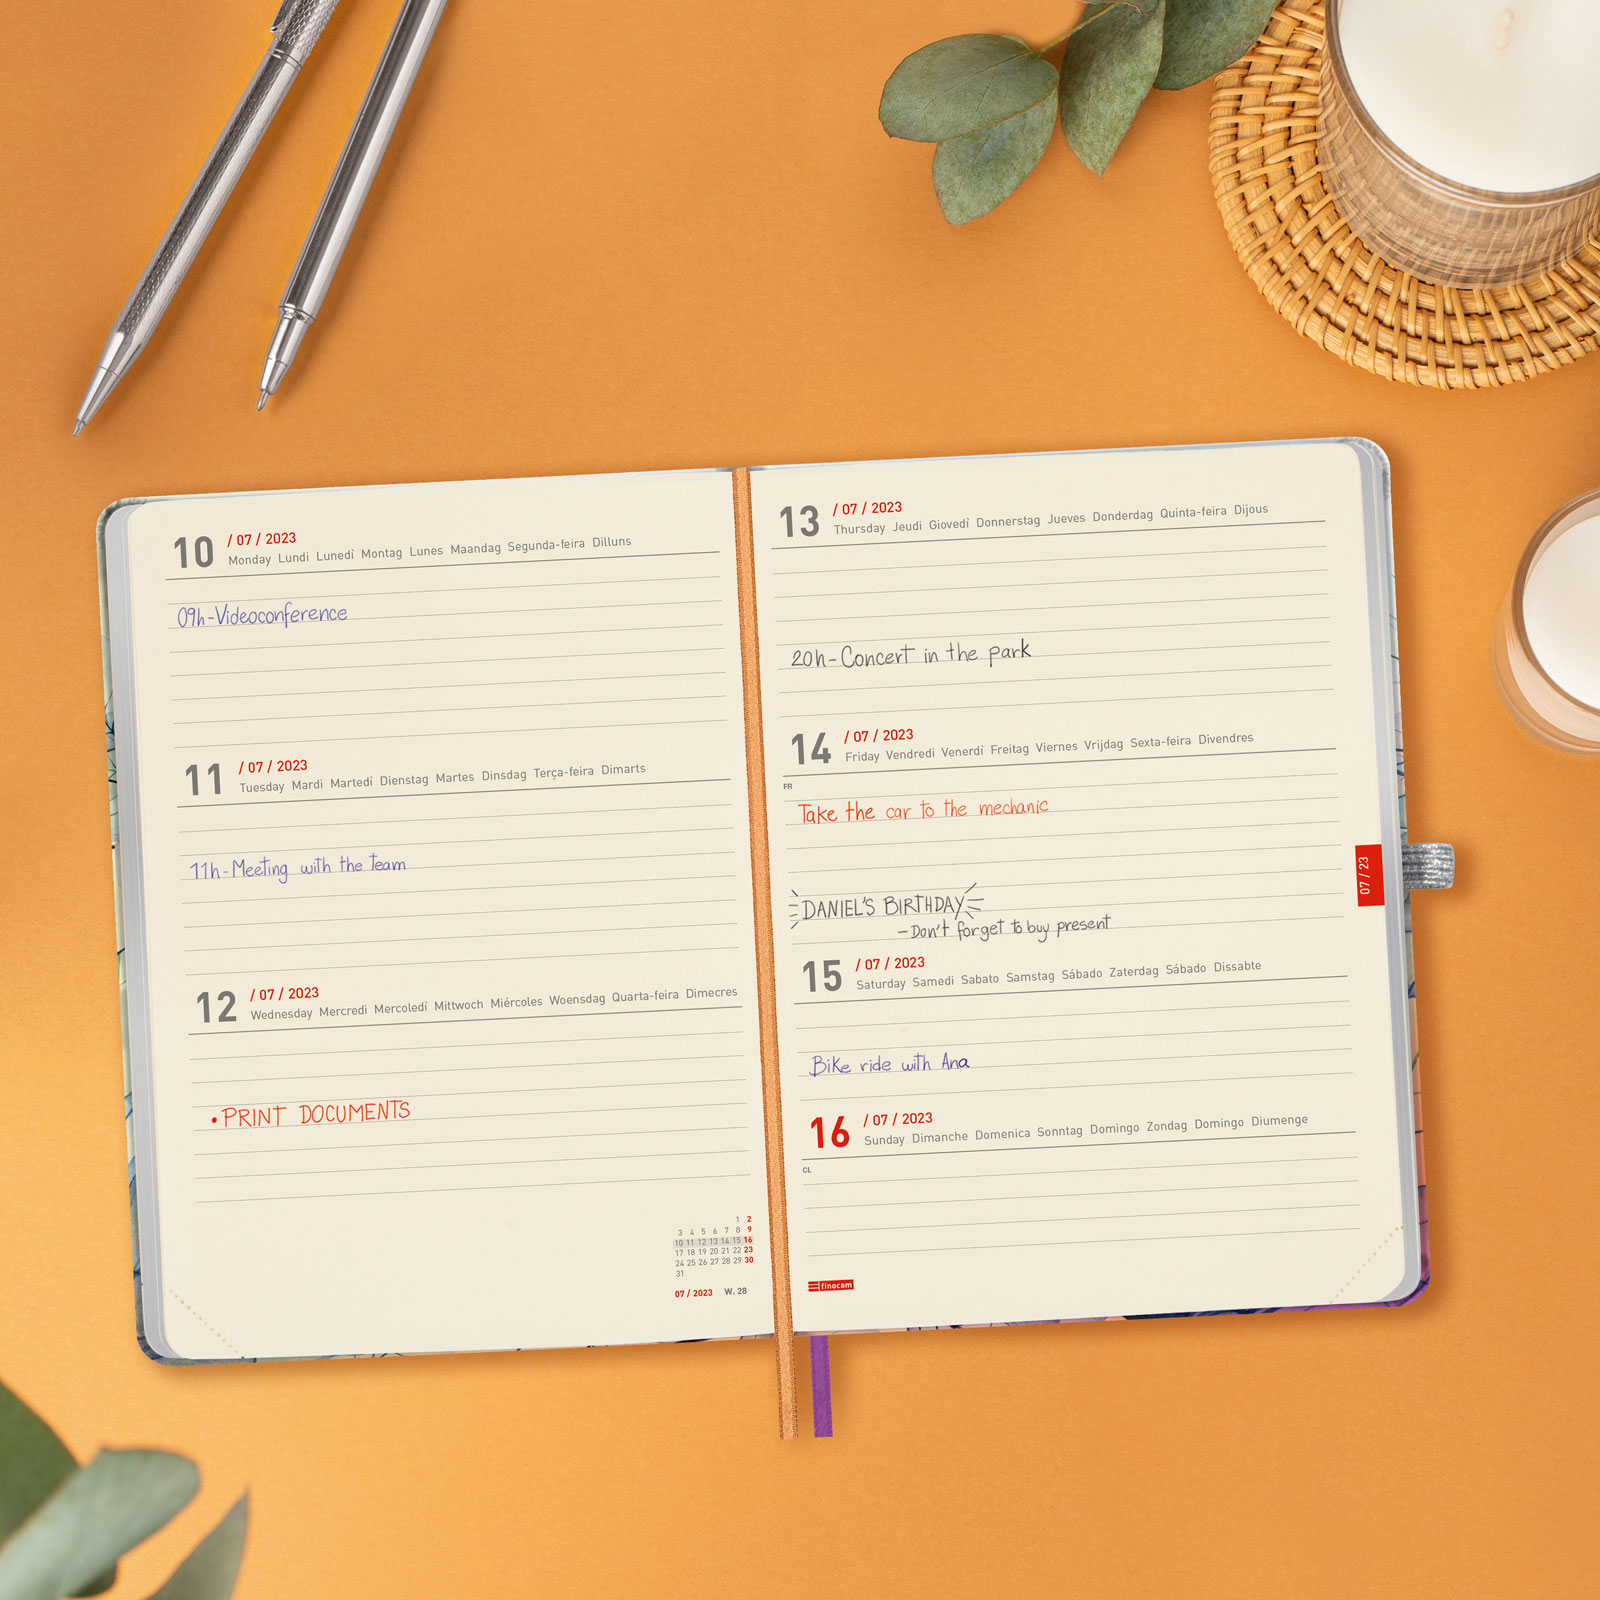 10 / 07 / 2023
Monday Lundi Lunedì Montag Lunes Maandag Segunda-feira Dilluns
09h-Videoconference
11 / 07 / 2023
Tuesday Mardi Martedì Dienstag Martes Dinsdag Terça-feira Dimarts
11h-Meeting with the team
12 / 07 / 2023
Wednesday Mercredi Mercoledì Mittwoch Miércoles Woensdag Quarta-feira Dimecres
• PRINT DOCUMENTS
1 2
3 4 5 6 7 8 9
10 11 12 13 14 15 16
17 18 19 20 21 22 23
24 25 26 27 28 29 30
31
07 / 2023 W. 28
13 / 07 / 2023
Thursday Jeudi Giovedì Donnerstag Jueves Donderdag Quinta-feira Dijous
20h-Concert in the park
14 / 07 / 2023
Friday Vendredi Venerdì Freitag Viernes Vrijdag Sexta-feira Divendres
FR
Take the car to the mechanic
DANIEL'S BIRTHDAY
-Don't forget to buy present
07 / 23
15 / 07 / 2023
Saturday Samedi Sabato Samstag Sábado Zaterdag Sábado Dissabte
Bike ride with Ana
16 / 07 / 2023
Sunday Dimanche Domenica Sonntag Domingo Zondag Domingo Diumenge
CL
finocam